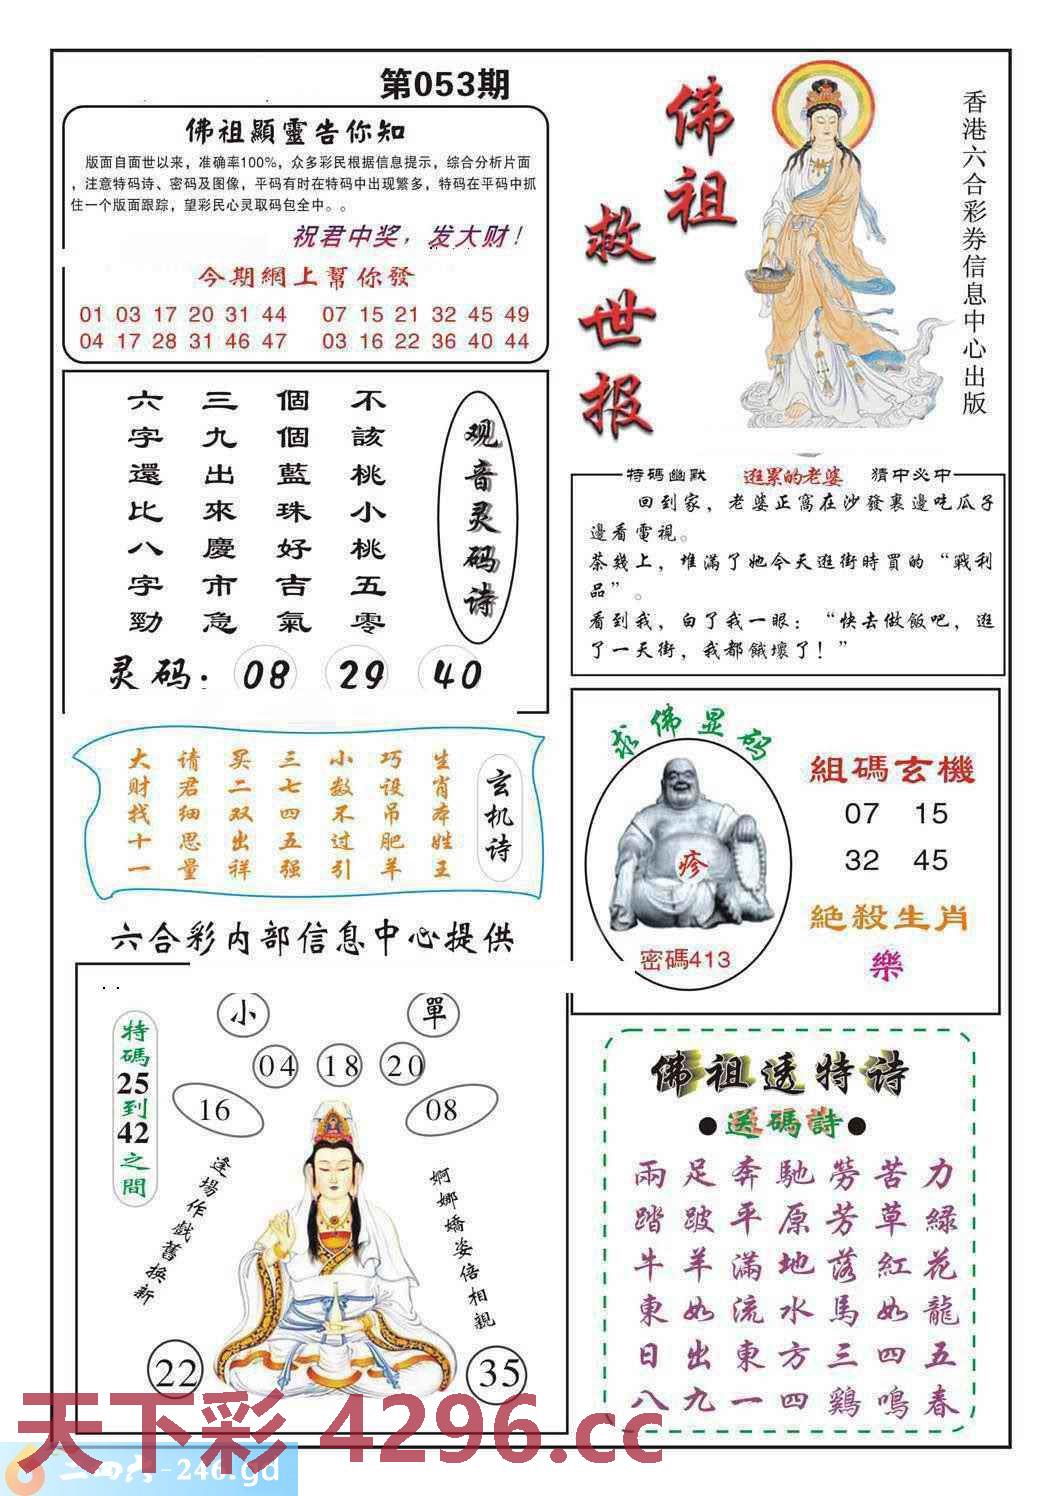 第053期
佛祖顯靈告你知
版面自面世以来，准确率100%，众多彩民根据信息提示，综合分析片面
，注意特码诗、密码及图像，平码有时在特码中出现繁多，特码在平码中抓
住一个版面跟踪，望彩民心灵取码包全中。。
祝君中奖，发大财！
今期網上幫你發
01 03 17 20 31 44 07 15 21 32 45 49
04 17 28 31 46 47 03 16 22 36 40 44
佛祖
救世报
香港六合彩券信息中心出版
观音灵码诗
不該桃小桃五零
個個藍珠好吉氣
三九出來慶市急
六字還比八字勁
灵码：08 29 40
特碼幽默 逛累的老婆 猜中必中
回到家，老婆正窩在沙發裏邊吃瓜子
邊看電視。
茶幾上，堆滿了她今天逛街時買的“戰利
品”。
看到我，白了我一眼：“快去做飯吧，逛
了一天街，我都餓壞了！”
玄机诗
生肖本姓王
巧设吊肥羊
小数不过引
三七四五强
买二双出祥
请君细思量
大财找十一
求佛显码
疹
密碼413
組碼玄機
07 15
32 45
絕殺生肖
樂
六合彩内部信息中心提供
小 單
04 18 20
16 08
特碼25到42之間
逢場作戲舊換新
婀娜嬌姿倍相親
22 35
佛祖透特诗
●送碼詩●
兩足奔馳勞苦力
踏跛平原芳草緑
牛羊滿地落紅花
東如流水馬如龍
日出東方三四五
八九一四鷄鳴春
天下彩 4296.cc
二四六-246.gd